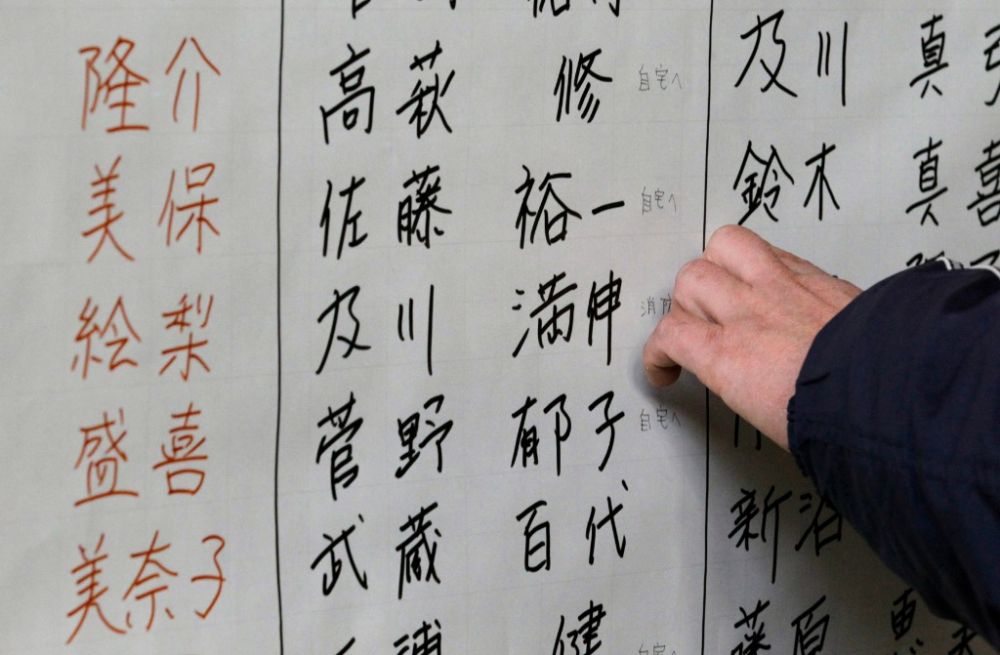 隆介
高萩 修 自宅へ
及川 真
美保
佐藤 裕一 自宅へ
鈴木 真喜
絵梨
及川 満伸 消防
盛喜
菅野 郁子 自宅へ
美奈子
武蔵 百代
新沼
健
藤原 恵